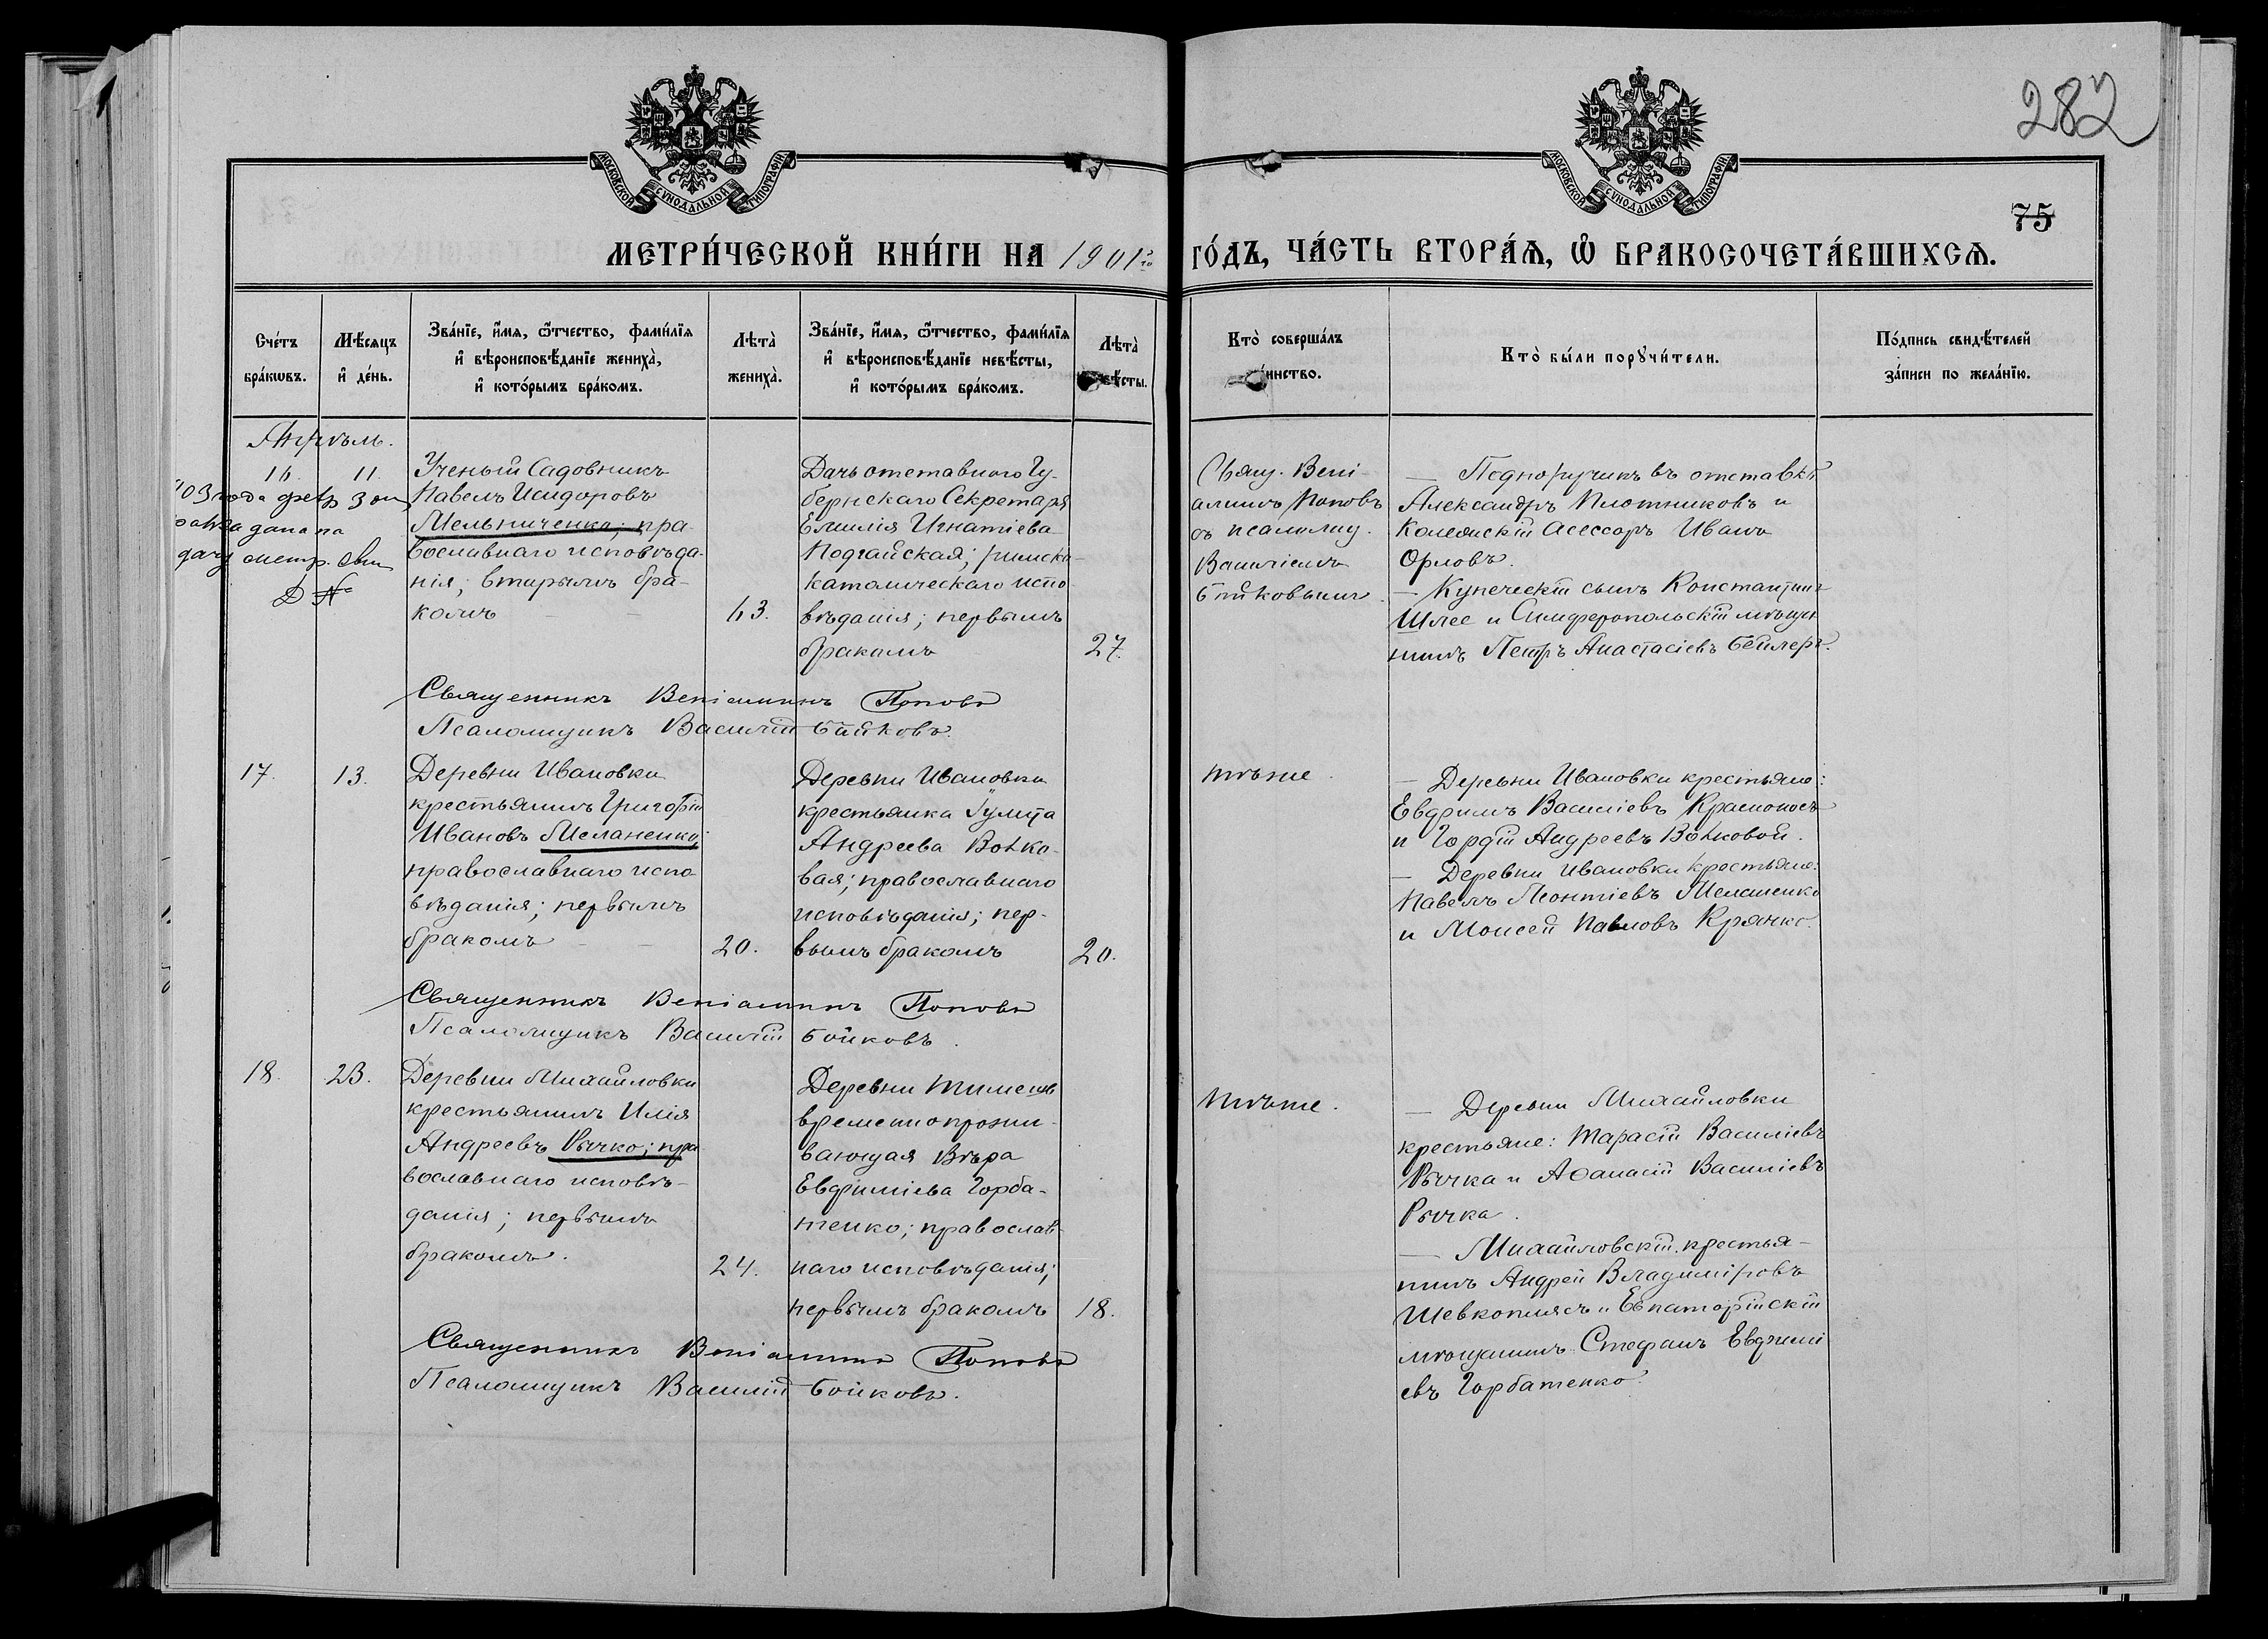 282
75
МОСКОВСКОЙ СѴНОДАЛЬНОЙ ТИПОГРАФІИ
МОСКОВСКОЙ СѴНОДАЛЬНОЙ ТИПОГРАФІИ
МЕТРИ́ЧЕСКОЙ КНИ́ГИ НА 1901й ГО́ДЪ, ЧА́СТЬ ВТОРА́Ѧ, Ѡ҆ БРАКОСОЧЕТА́ВШИХСѦ.
Сче́тъ
бра́кѡвъ.
Мѣ́сяцъ
и҆ де́нь.
Зва́нїе, и҆́мя, ѻ҆́тчество, фами́лїя
и҆ вѣроисповѣ́данїе жениха̀,
и҆ кото́рымъ бра́комъ.
Лѣта̀
жениха̀.
Зва́нїе, и҆́мя, ѻ҆́тчество, фами́лїя
и҆ вѣроисповѣ́данїе невѣ́сты,
и҆ кото́рымъ бра́комъ.
Лѣта̀
невѣ́сты.
Кто̀ соверша́лъ
таинство.
Кто̀ бы́ли порꙋчи́тели.
По́дпись свидѣ́телей
за́писи по жела́нїю.
Апрѣль.
16.
11.
Ученый Садовникъ
Павелъ Исидоровъ
Мельниченко; пра-
вославнаго исповѣда-
нія; вторымъ бра-
комъ
63.
03 года февр 3 дня
дана на
метр.
Д №
Дочь отставного Гу-
бернскаго Секретаря
Емилія Игнатіева
Подгайская; римско-
католическаго испо-
вѣданія; первымъ
бракомъ
27.
Свящ. Вені-
аминъ Поповъ
съ псаломщ.
Василіемъ
Бойковымъ.
— Подпоручикъ въ отставкѣ
Александръ Плотниковъ и
Колежскій Асессоръ Иванъ
Орловъ.
— Купеческій сынъ Константинъ
Шлее и Симферопольскій мѣща
нинъ Петръ Анастасіевъ Бейлеръ.
Священникъ Веніаминъ Поповъ
Псаломщикъ Василій Бойковъ.
17.
13.
Деревни Ивановки
крестьянинъ Григорій
Ивановъ Меланенко;
православнаго испо
вѣданія; первымъ
бракомъ
20.
Деревни Ивановки
крестьянка Іулита
Андреева Вовко-
вая; православнаго
исповѣданія; пер-
вымъ бракомъ
20.
тѣже.
— Деревни Ивановки крестьяне:
Евфимъ Василіевъ Красноносъ
и Гордій Андреевъ Вовковой.
— Деревни Ивановки крестьяне:
Павелъ Леонтіевъ Меланенко
и Моисей Павловъ Крячко.
Священникъ Веніаминъ Поповъ
Псаломщикъ Василій Бойковъ.
18.
23.
Деревни Михайловки
крестьянинъ Илія
Андреевъ Рычко; пра
вославнаго исповѣ-
данія; первымъ
бракомъ.
24.
Деревни
временно прожи-
вающая Вѣра
Евфиміева Горба-
тенко; православ-
наго исповѣданія;
первымъ бракомъ
18.
тѣже.
— Деревни Михайловки
крестьяне: Тарасій Василіевъ
Рычка и Аѳанасій Василіевъ
Рычка.
— Михайловскій крестья-
нинъ Андрей Владиміровъ
Шевкоплясъ и Евпаторійскій
мѣщанинъ Стефанъ Евфимі
евъ Горбатенко.
Священникъ Веніаминъ Поповъ
Псаломщикъ Василій Бойковъ.